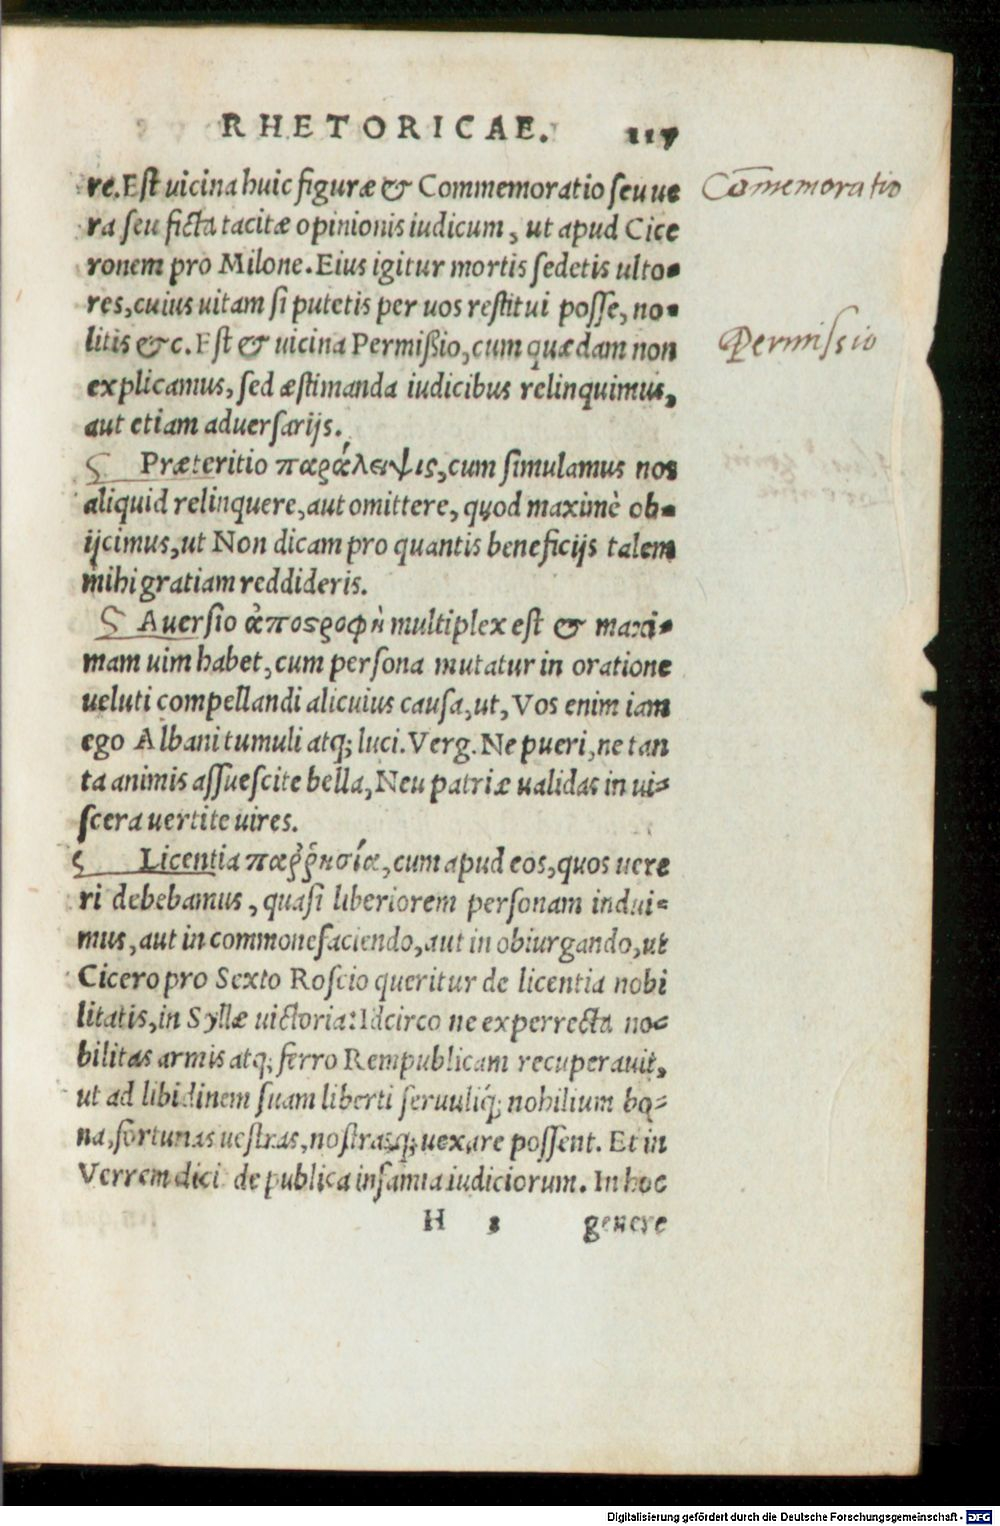 RHETORICAE. 117
re. Est uicina huic figuræ & Commemoratio seu ue
Cõmemoratio
ra seu ficta tacitæ opinionis iudicum, ut apud Cice
ronem pro Milone. Eius igitur mortis sedetis ulto-
res, cuius uitam si putetis per uos restitui posse, no-
litis &c. Est & uicina Permißio, cum quædam non
Permissio
explicamus, sed æstimanda iudicibus relinquimus,
aut etiam aduersarijs.
Præteritio παράλειψις, cum simulamus nos
aliquid relinquere, aut omittere, quod maximè ob-
ijcimus, ut Non dicam pro quantis beneficijs talem
mihi gratiam reddideris.
Auersio ἀποςροφὴ multiplex est & maxi-
mam uim habet, cum persona mutatur in oratione
ueluti compellandi alicuius causa, ut, Vos enim iam
ego Albani tumuli atq; luci. Verg. Ne pueri, ne tan
ta animis assuescite bella, Neu patriæ ualidas in ui-
scera uertite uires.
Licentia παῤῥησία, cum apud eos, quos uere
ri debebamus, quasi liberiorem personam indui-
mus, aut in commonefaciendo, aut in obiurgando, ut
Cicero pro Sexto Roscio queritur de licentia nobi
litatis, in Syllæ uictoria: Idcirco ne experrecta no-
bilitas armis atq; ferro Rempublicam recuperauit,
ut ad libidinem suam liberti seruuliq́; nobilium bo-
na, fortunas uestras, nostrasq; uexare possent. Et in
Verrem dici de publica infamia iudiciorum. In hoc
H 3 genere
Digitalisierung gefördert durch die Deutsche Forschungsgemeinschaft - DFG